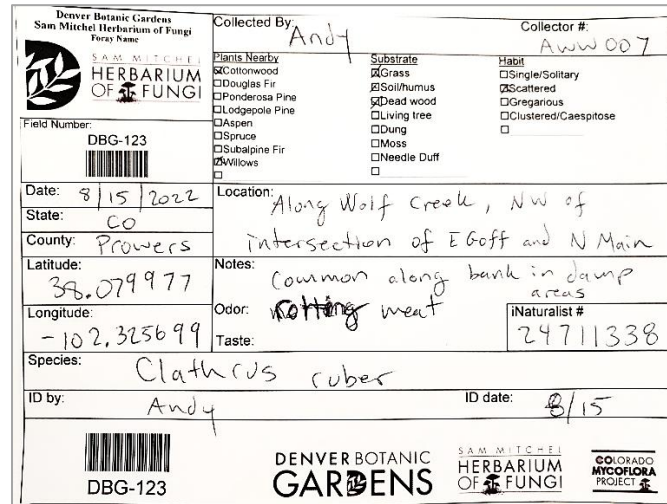 Denver Botanic Gardens
Sam Mitchel Herbarium of Fungi
Foray Name
SAM MITCHEL
HERBARIUM
OF FUNGI
Field Number:
DBG-123
Collected By: Andy
Collector #: AWW007
Plants Nearby
Cottonwood
Douglas Fir
Ponderosa Pine
Lodgepole Pine
Aspen
Spruce
Subalpine Fir
Willows
Substrate
Grass
Soil/humus
Dead wood
Living tree
Dung
Moss
Needle Duff
Habit
Single/Solitary
Scattered
Gregarious
Clustered/Caespitose
Date: 8/15/2022
State: CO
County: Prowers
Latitude:
38.079977
Longitude:
-102.325699
Location: Along Wolf Creek, NW of
intersection of E Goff and N Main
Notes: Common along bank in damp
areas
Odor: rotting meat
Taste:
iNaturalist #
24711338
Species: Clathrus ruber
ID by: Andy
ID date: 8/15
DBG-123
DENVER BOTANIC
GARDENS
SAM MITCHEL
HERBARIUM
OF FUNGI
COLORADO
MYCOFLORA
PROJECT